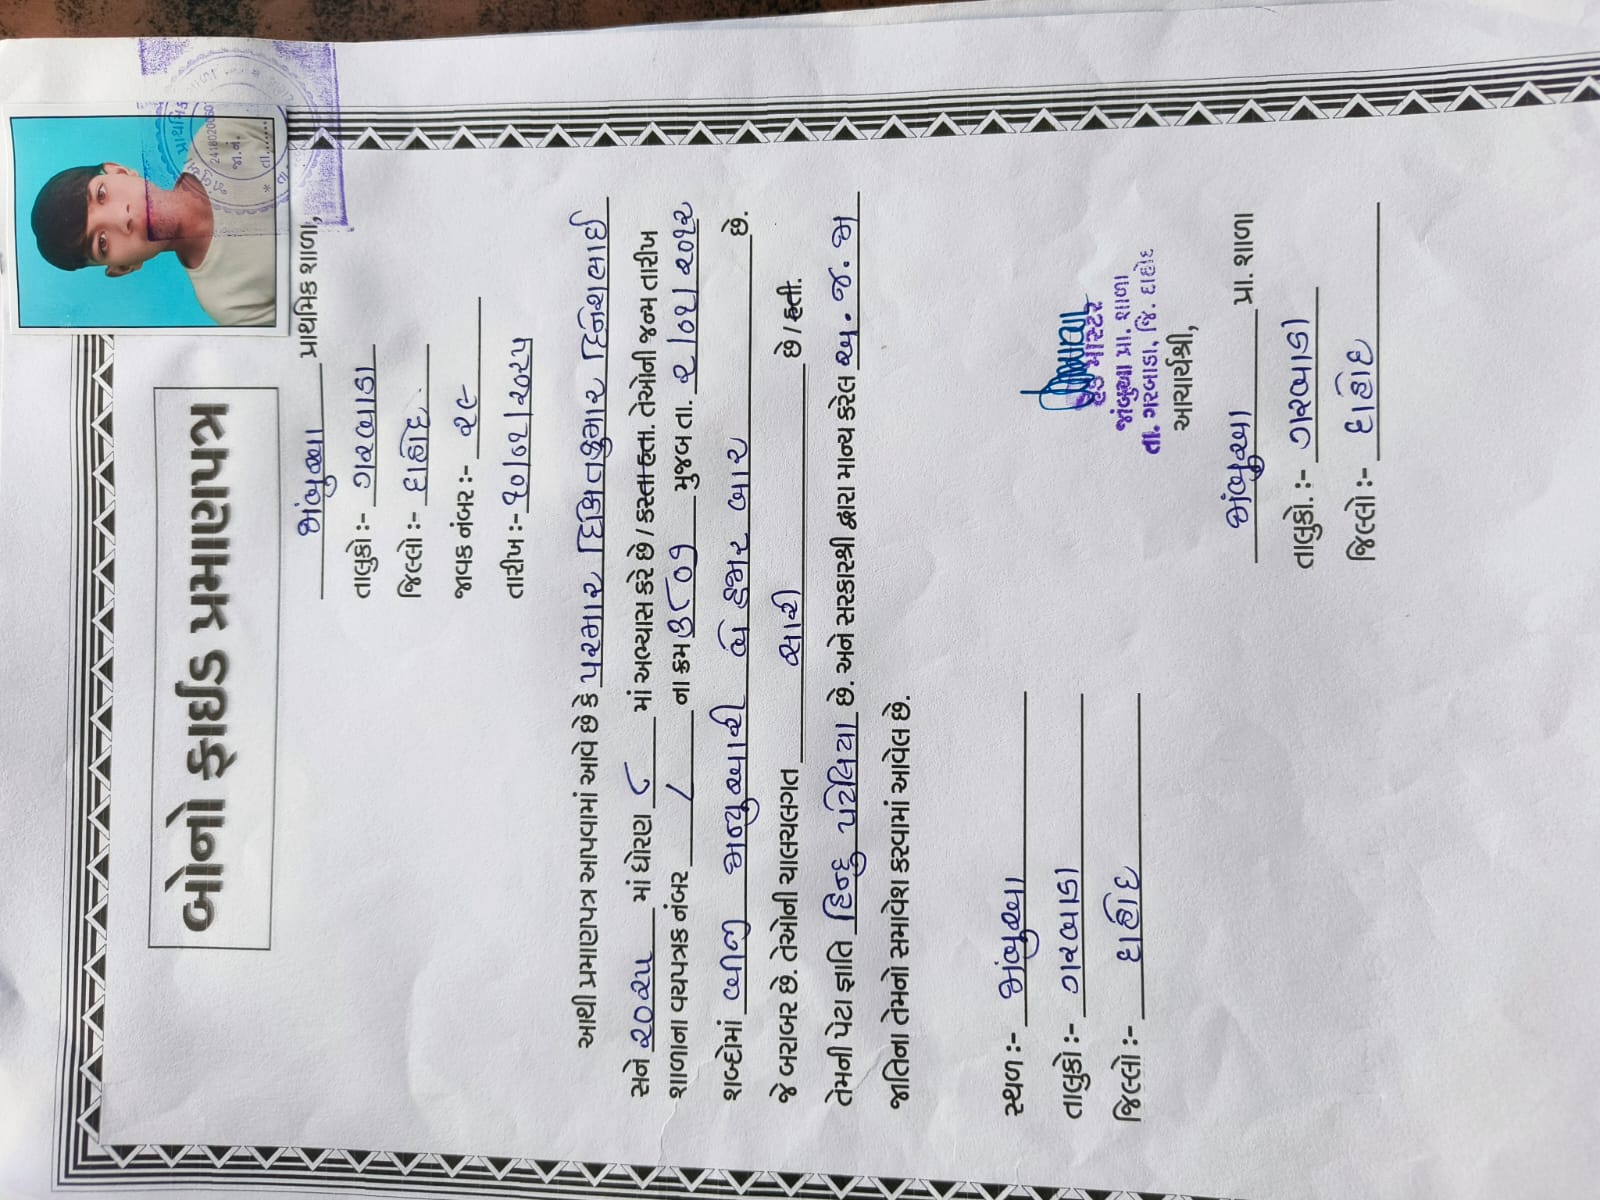 બોનો ફાઈડ પ્રમાણપત્ર
જાંબુઆ પ્રાથમિક શાળા,
તાલુકો :- ગરબાડા
જિલ્લો :- દાહોદ
જાવક નંબર :- ૨૯
તારીખ :- ૧૦/૦૧/૨૦૨૫
આથી પ્રમાણપત્ર આપવામાં આવે છે કે પરમાર દિનેશભાઈ
સને ૨૦૨૫ માં ધોરણ ૮ માં અભ્યાસ કરે છે / કરતા હતા. તેઓની જન્મ તારીખ
શાળાના વયપત્રક નંબર / ના ક્રમ મુજબ તા. ૨/૦૧/૨૦૧૨
શબ્દોમાં બીજી જાન્યુઆરી બે હજાર બાર છે.
જે બરાબર છે. તેઓની ચાલચલગત સારી છે / હતી.
તેમની પેટા જ્ઞાતિ હિન્દુ પટેલિયા છે. અને સરકારશ્રી દ્વારા માન્ય કરેલ અ. જ. જા
જાતિના તેમનો સમાવેશ કરવામાં આવેલ છે.
સ્થળ :- જાંબુઆ
તાલુકો :- ગરબાડા
જિલ્લો :- દાહોદ
હેડ માસ્ટર
જાંબુઆ પ્રા. શાળા
તા. ગરબાડા, જિ. દાહોદ
આચાર્યશ્રી,
જાંબુઆ પ્રા. શાળા
તાલુકો. :- ગરબાડા
જિલ્લો :- દાહોદ